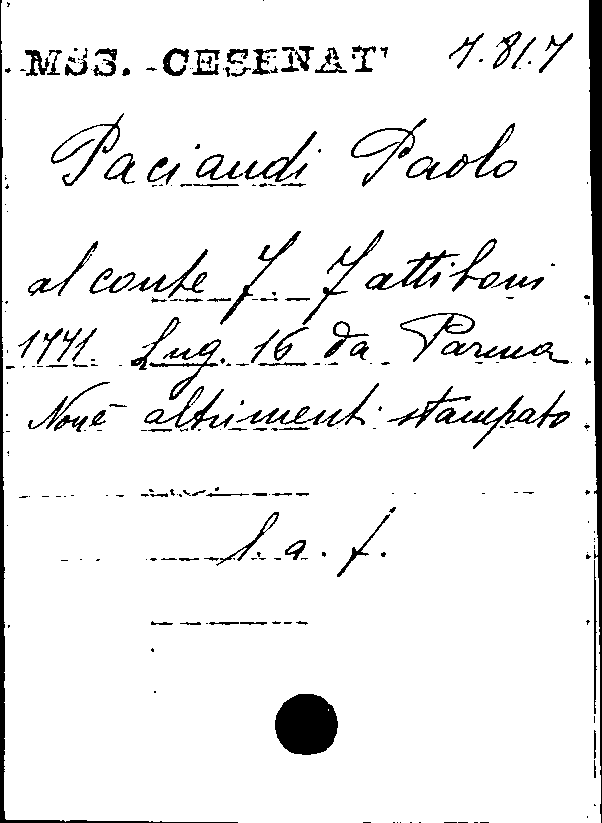 MSS. CESENAT' 7.81.7
Paciaudi Paolo
al conte F. Fattiboni
1771. Lug. 16 da Parma
Non è altrimenti stampato
l. a. f.